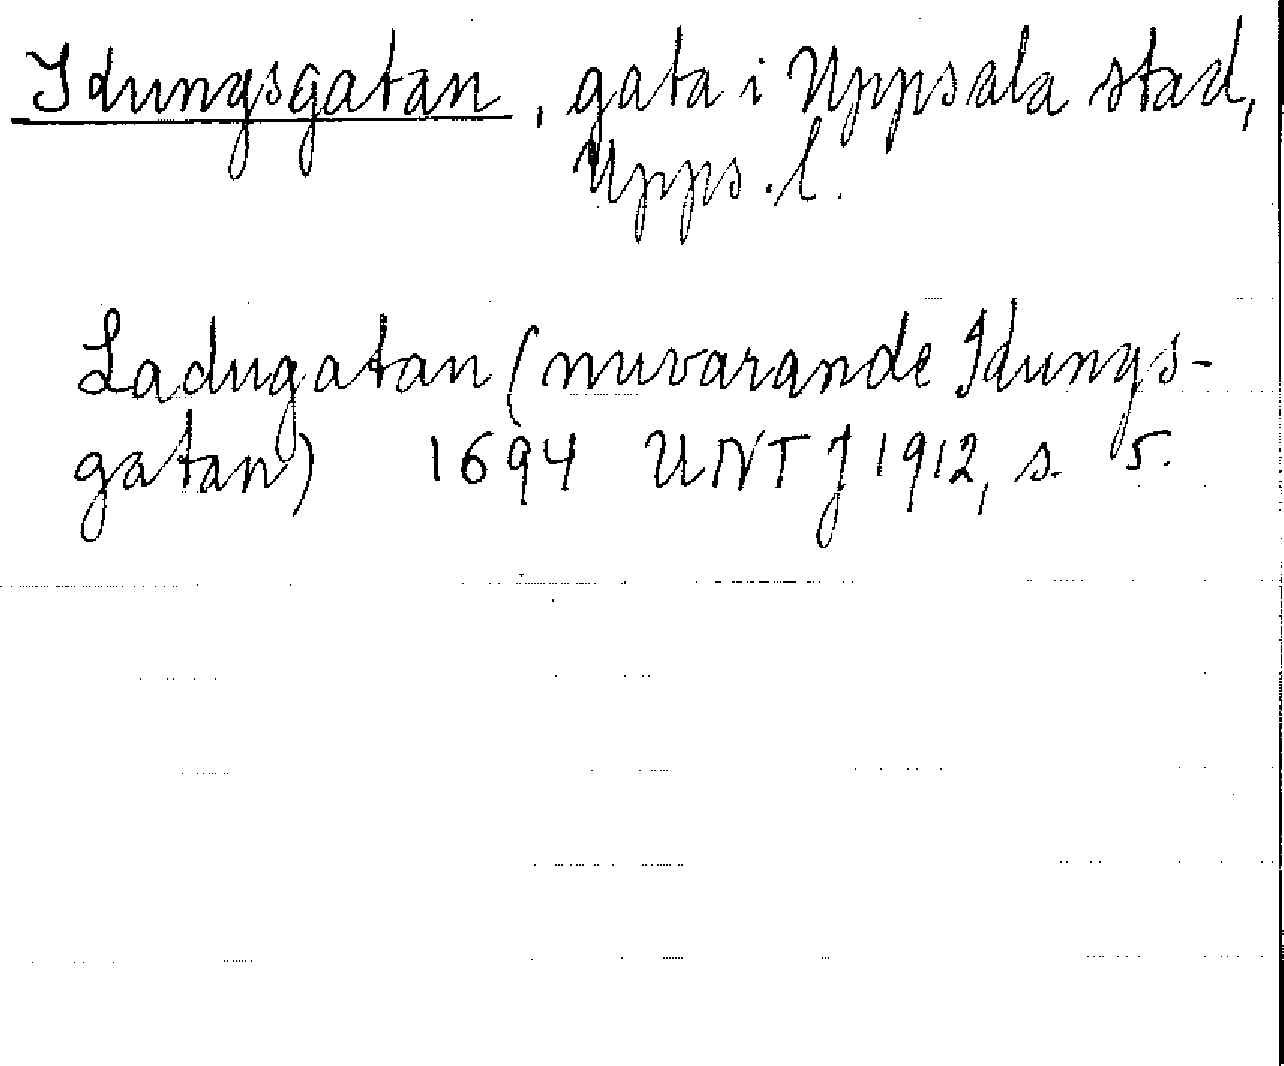 Idungsgatan, gata i Uppsala stad,
Upps. l.
Ladugatan (nuvarande Idungs-
gatan) 1694 UNTJ 1912, s. 5.